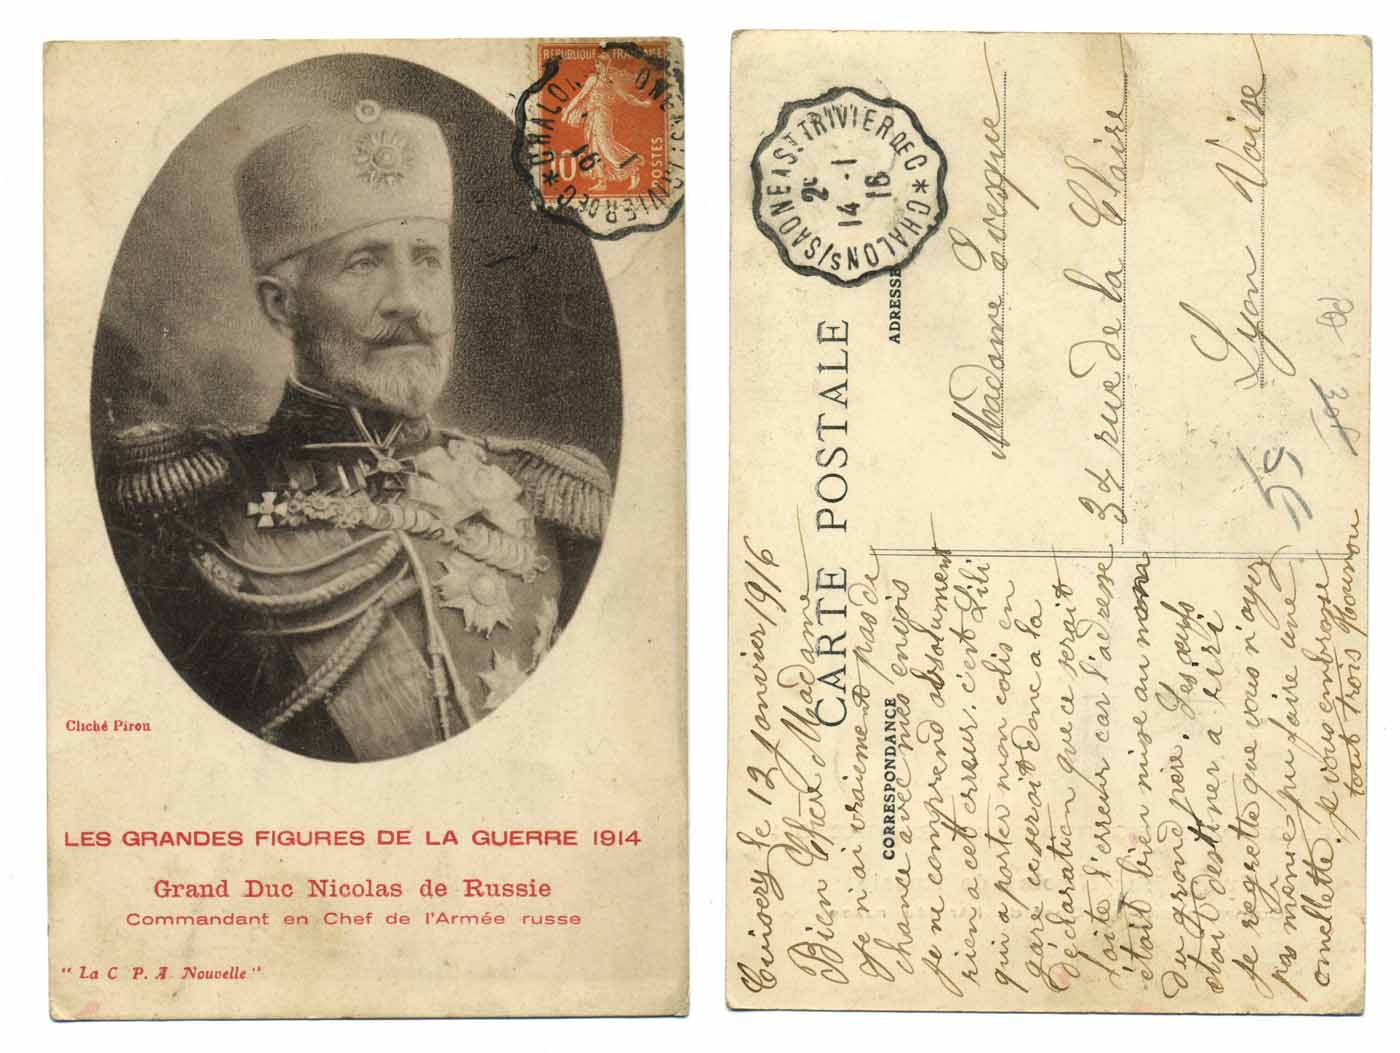 REPUBLIQUE FRANÇAISE
10
POSTES
CHALON
16
1
Cliché Pirou
LES GRANDES FIGURES DE LA GUERRE 1914
Grand Duc Nicolas de Russie
Commandant en Chef de l'Armée russe
" La C P. A Nouvelle "
CHALON S/SAONE A ST TRIVIER DE C *
2e
14 - 1
16
CARTE POSTALE
CORRESPONDANCE
ADRESSE
Madame
rue de la Claire
Lyon Vaise
55
Cuisery le 13 Janvier 1916
Bien Chère Madame
Je n'ai vraiement pas de
chance avec mes envois
je ne comprend absolument
rien a cett erreur. c'est Lili
qui a porter mon colis en
gare ce serait donc a la
déclaration que ce serait
faite l'erreur car l'adresse
était bien mise au nom
du grand père. Les œufs
étai destiner a
je regrette que vous n'ayez
pas même pu faire une
omellette. je vous embrasse
tout trois